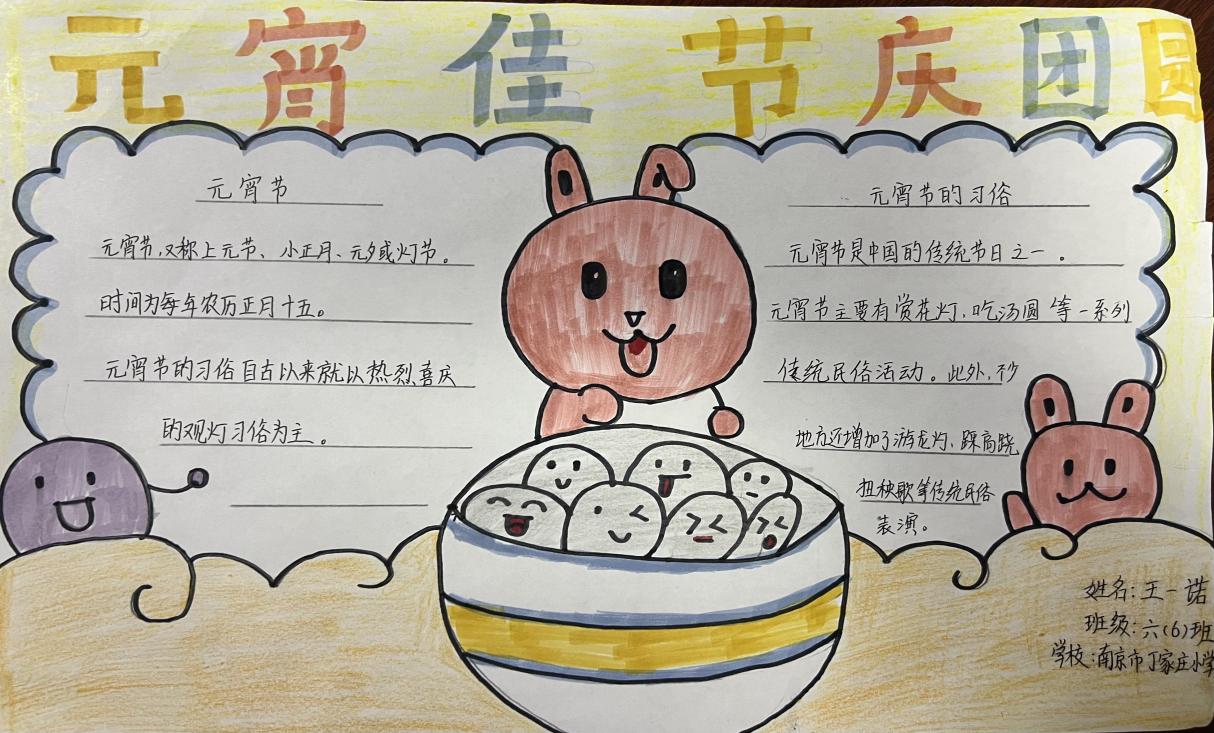 元宵佳节庆团圆
元宵节
元宵节,又称上元节、小正月、元夕或灯节。
时间为每年农历正月十五。
元宵节的习俗自古以来就以热烈喜庆
的观灯习俗为主。
元宵节的习俗
元宵节是中国的传统节日之一。
元宵节主要有赏花灯、吃汤圆等一系列
传统民俗活动。此外,不少
地方还增加了游龙灯、踩高跷
扭秧歌等传统民俗
表演。
姓名:王一诺
班级:六(6)班
学校:南京市丁家庄小学